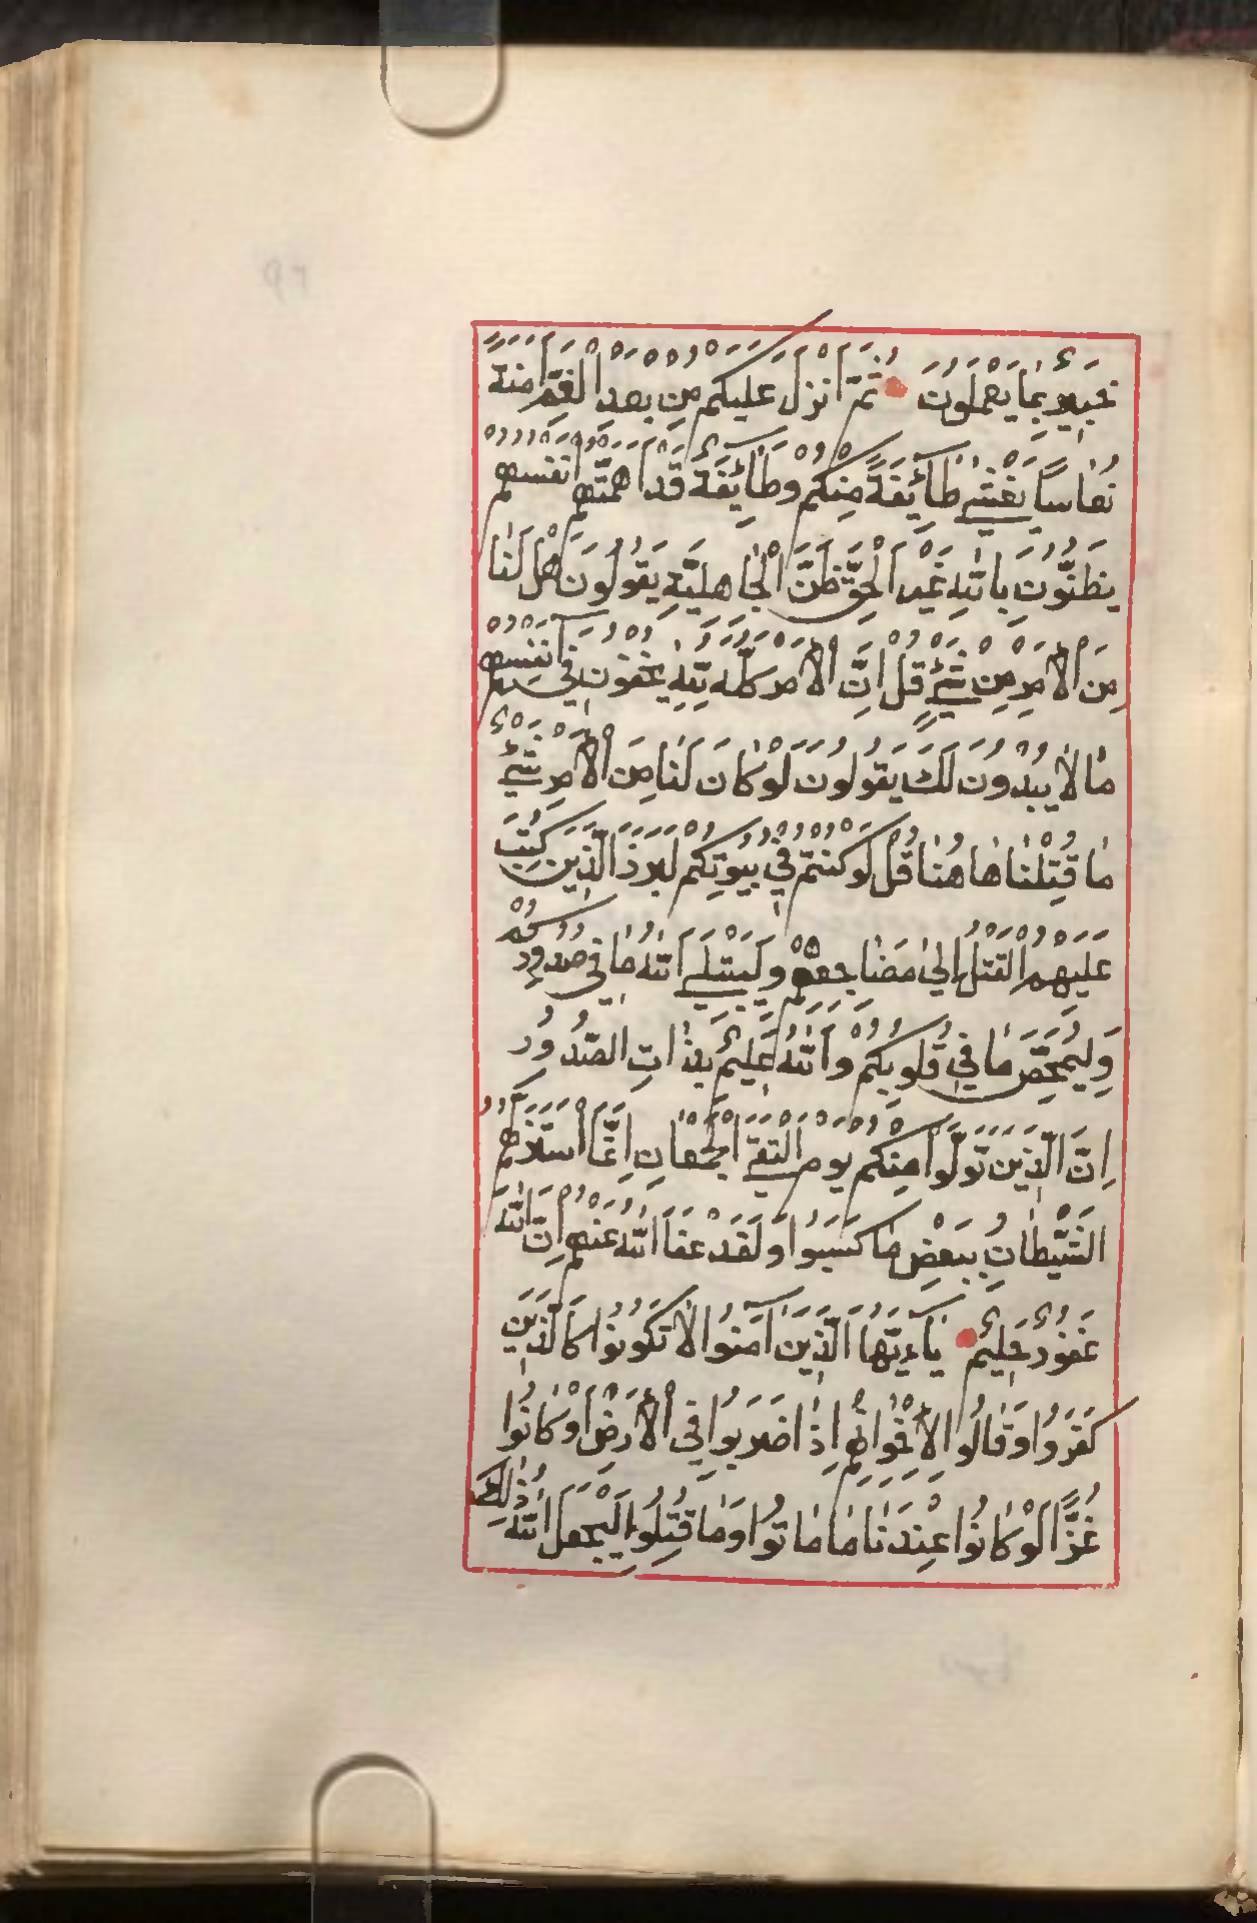 خَبِيرٌ بِمَا يَعْمَلُونَ ثُمَّ اَنْزَلَ عَلَيْكُمْ مِنْ بَعْدِ الْغَمِّ اَمَنَةً
نُعَاسًا يَغْشٰى طَآئِفَةً مِنْكُمْ وَطَآئِفَةٌ قَدْ اَهَمَّتْهُمْ اَنْفُسُهُمْ
يَظُنُّونَ بِاللّٰهِ غَيْرَ الْحَقِّ ظَنَّ الْجَاهِلِيَّةِ يَقُولُونَ هَلْ لَنَا
مِنَ الْاَمْرِ مِنْ شَيْءٍ قُلْ اِنَّ الْاَمْرَ كُلَّهُ لِلّٰهِ يُخْفُونَ فِي اَنْفُسِهِمْ
مَا لَا يُبْدُونَ لَكَ يَقُولُونَ لَوْ كَانَ لَنَا مِنَ الْاَمْرِ شَيْءٌ
مَا قُتِلْنَا هَاهُنَا قُلْ لَوْ كُنْتُمْ فِي بُيُوتِكُمْ لَبَرَزَ الَّذِينَ كُتِبَ
عَلَيْهِمُ الْقَتْلُ اِلٰى مَضَاجِعِهِمْ وَلِيَبْتَلِيَ اللّٰهُ مَا فِي صُدُورِكُمْ
وَلِيُمَحِّصَ مَا فِي قُلُوبِكُمْ وَاللّٰهُ عَلِيمٌ بِذَاتِ الصُّدُورِ
اِنَّ الَّذِينَ تَوَلَّوْا مِنْكُمْ يَوْمَ الْتَقَى الْجَمْعَانِ اِنَّمَا اسْتَزَلَّهُمُ
الشَّيْطَانُ بِبَعْضِ مَا كَسَبُوا وَلَقَدْ عَفَا اللّٰهُ عَنْهُمْ اِنَّ اللّٰهَ
غَفُورٌ حَلِيمٌ يَآءَيُّهَا الَّذِينَ آمَنُوا لَا تَكُونُوا كَالَّذِينَ
كَفَرُوا وَقَالُوا لِاِخْوَانِهِمْ اِذَا ضَرَبُوا فِي الْاَرْضِ اَوْ كَانُوا
غُزًّا لَوْ كَانُوا عِنْدَنَا مَا مَاتُوا وَمَا قُتِلُوا لِيَجْعَلَ اللّٰهُ ذٰلِكَ